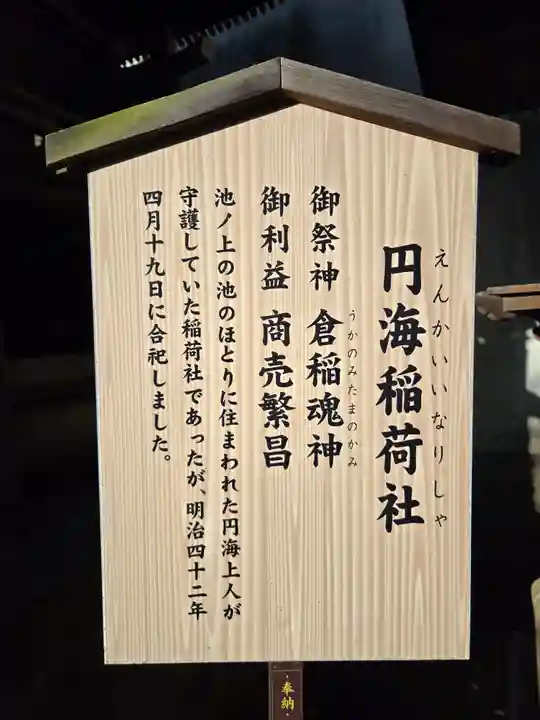 円海稲荷社
えんかいいなりしゃ
御祭神 倉稲魂神
うかのみたまのかみ
御利益 商売繁昌
池ノ上の池のほとりに住まわれた円海上人が
守護していた稲荷社であったが、明治四十二年
四月十九日に合祀しました。
奉納